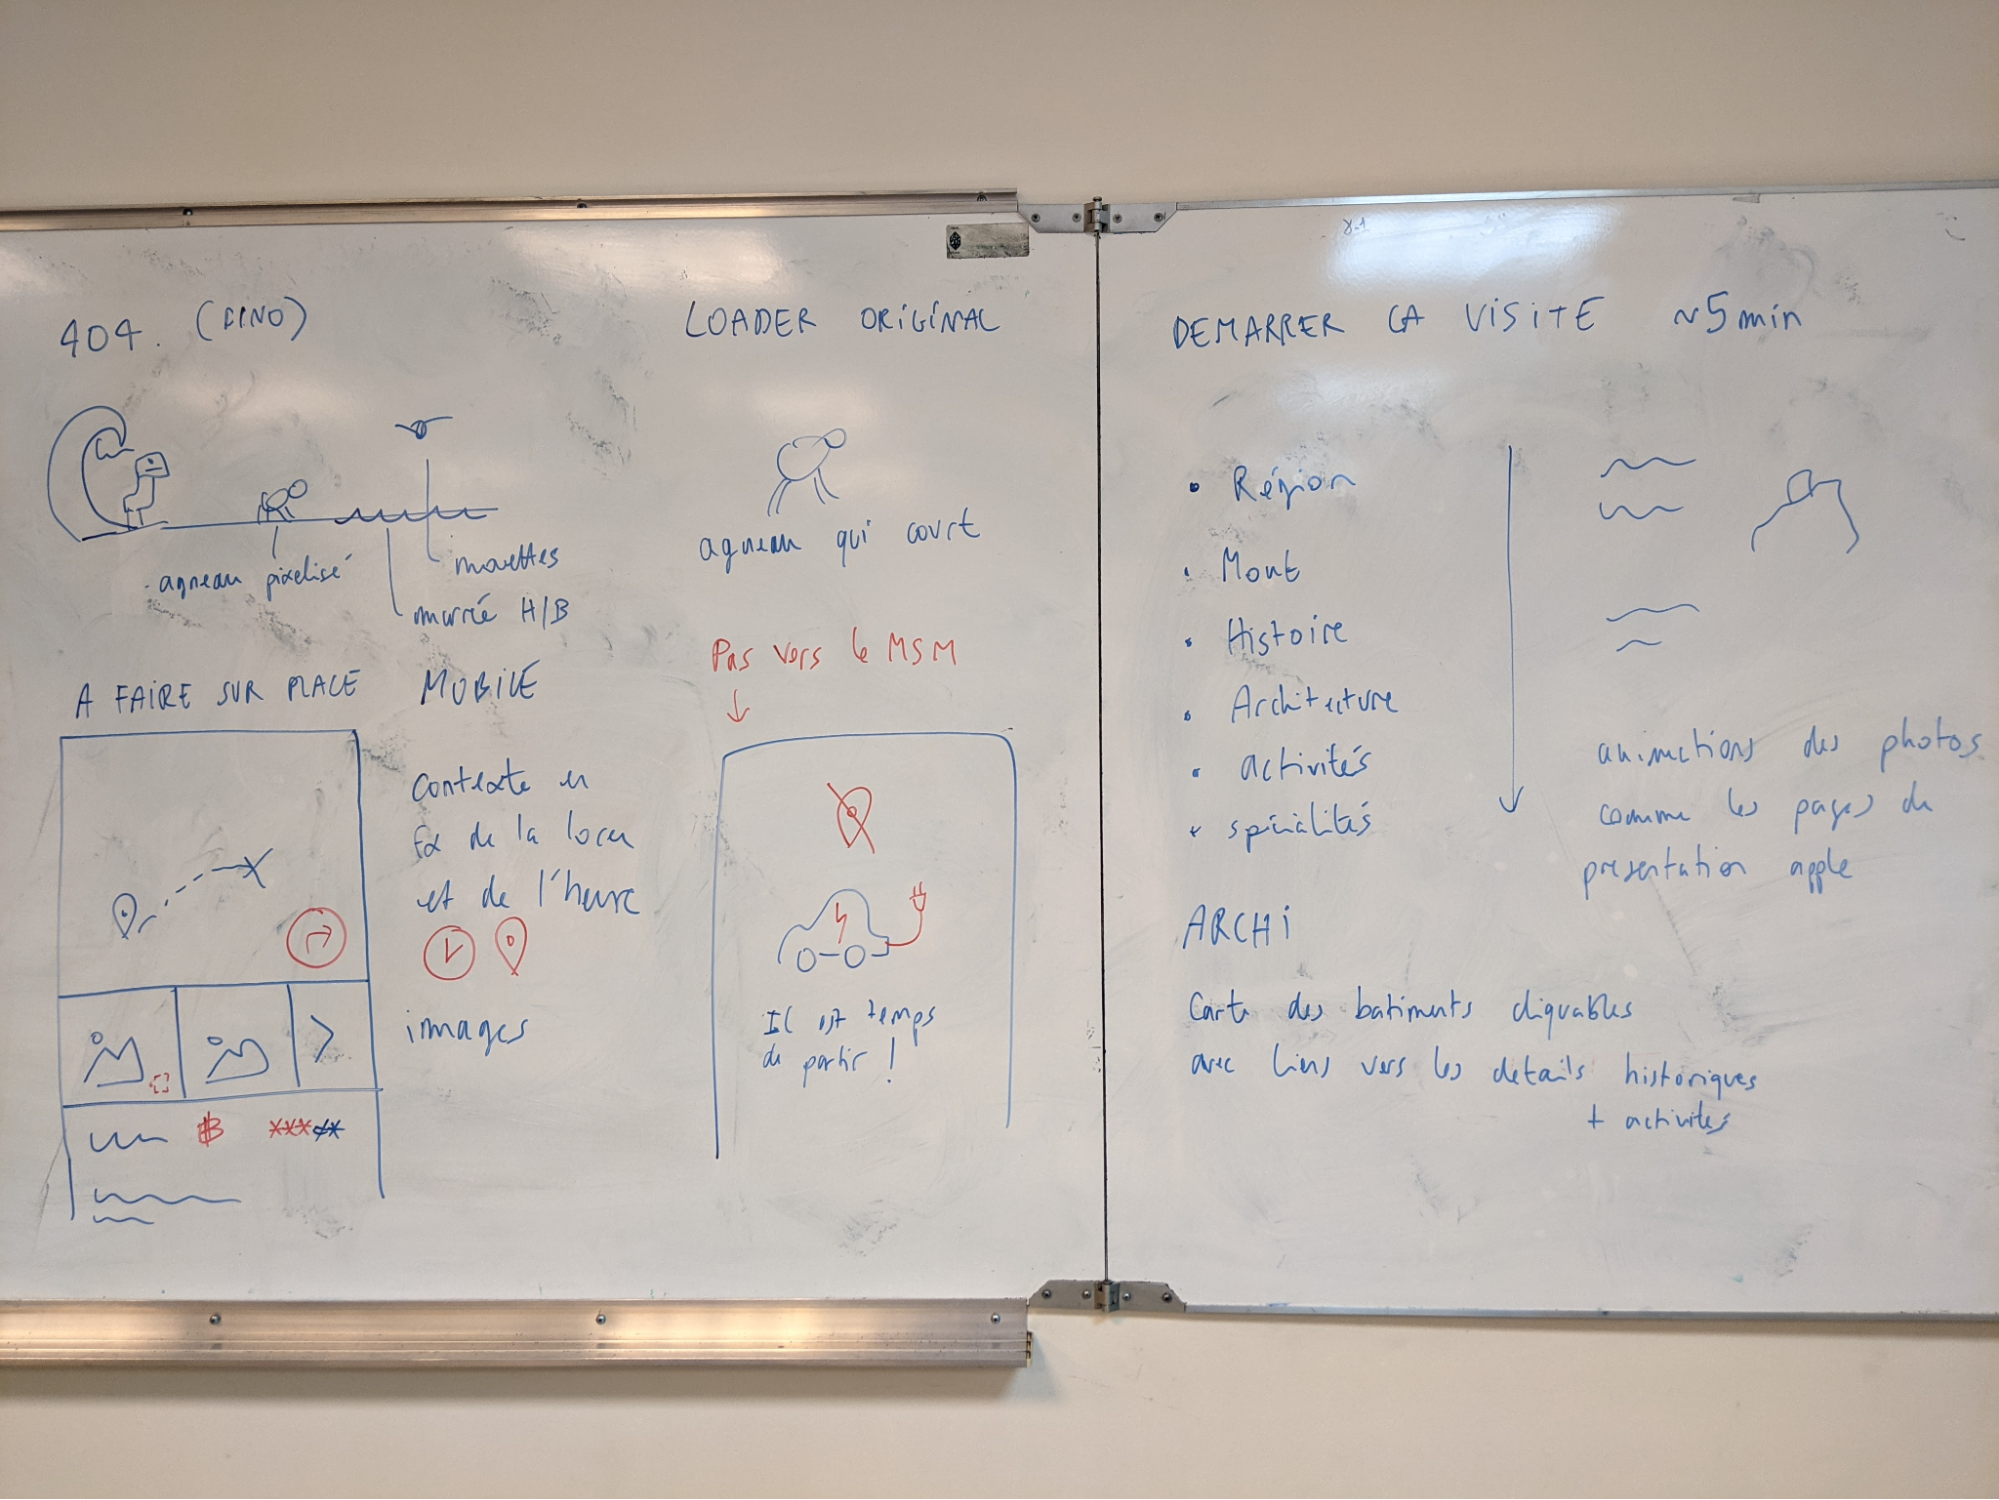 404. (DINO)
mouettes
. agneau pixelisé
marrée H/B
LOADER ORIGINAL
agneau qui court
A FAIRE SUR PLACE
MOBILE
contexte en
fx de la loca
et de l'heure
images
Pas vers le MSM
Il est temps
de partir !
DEMARRER LA VISITE ~5min
• Région
• Mont
• Histoire
• Architecture
• activités
• spécialités
animations des photos
comme les pages de
présentation apple
ARCHI
Carte des batiments cliquables
avec liens vers les détails historiques
+ activités